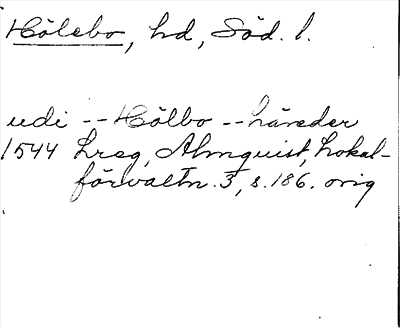 Hölebo, hd, Söd. l.
udi -- Hölbo -- häreder
1544 Lreg, Almquist, Lokal-
förvaltn. 3, s. 186. orig